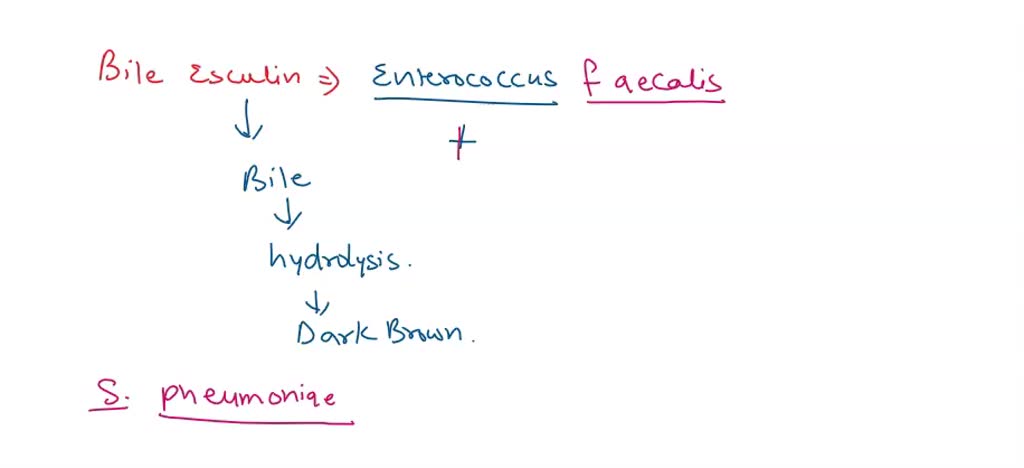 Bile Esculin ⇒ Enterococcus faecalis
↓ +
Bile
↓
hydrolysis.
↓
Dark Brown.
S. pneumoniae